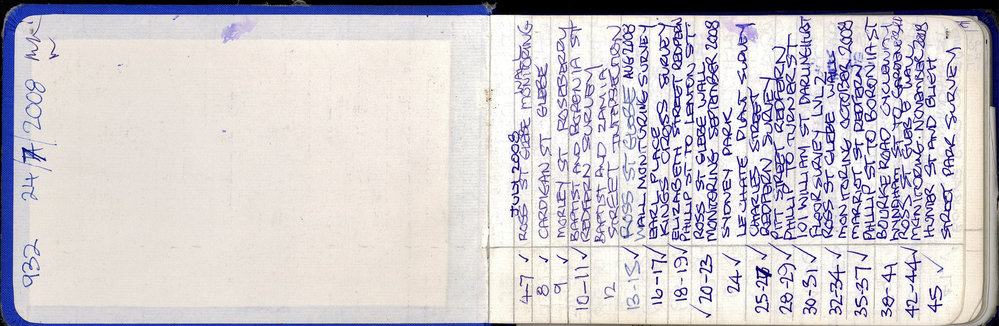 932 24/7/2008 MK
JULY 2008
4-7 ✓ ROSS ST GLEBE WALL MONITORING
8 ✓ CARDIGAN ST GLEBE
9 ✓ MORLEY ST ROSEBERY
10-11 ✓ BAPTIST AND BORONIA ST
REDFERN SURVEY
12 BAPTIST AND ZAMIA
STREET INTERSECTION
13-15 ✓ ROSS ST GLEBE AUG 2008
WALL MONITORING SURVEY
16-17 ✓ EARL PLACE
KINGS CROSS SURVEY
18-19 ✓ ELIZABETH STREET REDFERN
PHILLIP ST TO ST
✓ 20-23 ROSS ST GLEBE WALL
MONITORING SEPTEMBER 2008
24 ✓ SYDNEY PARK
LEACHATE PLANT SYDNEY
25-27 ✓ CHARLES STREET
REDFERN SURVEY
28-29 ✓ PITT STREET REDFERN
PHILLIP TO TURNER ST
30-31 ✓ 101 WILLIAM ST DARLINGHURST
FLOOR SURVEY LVL 2
32-34 ✓ ROSS ST GLEBE WALLS
MONITORING OCTOBER 2008
35-37 ✓ MARRIOTT ST REDFERN
PHILLIP ST TO BORONIA ST
38-41 BOURKE ROAD CYCLEWAY
ST TO
42-44 ✓ ROSS ST GLEBE WALL
MONITORING NOVEMBER 2008
45 ✓ HUNTER ST AND BLIGH
SPROD PARK SURVEY